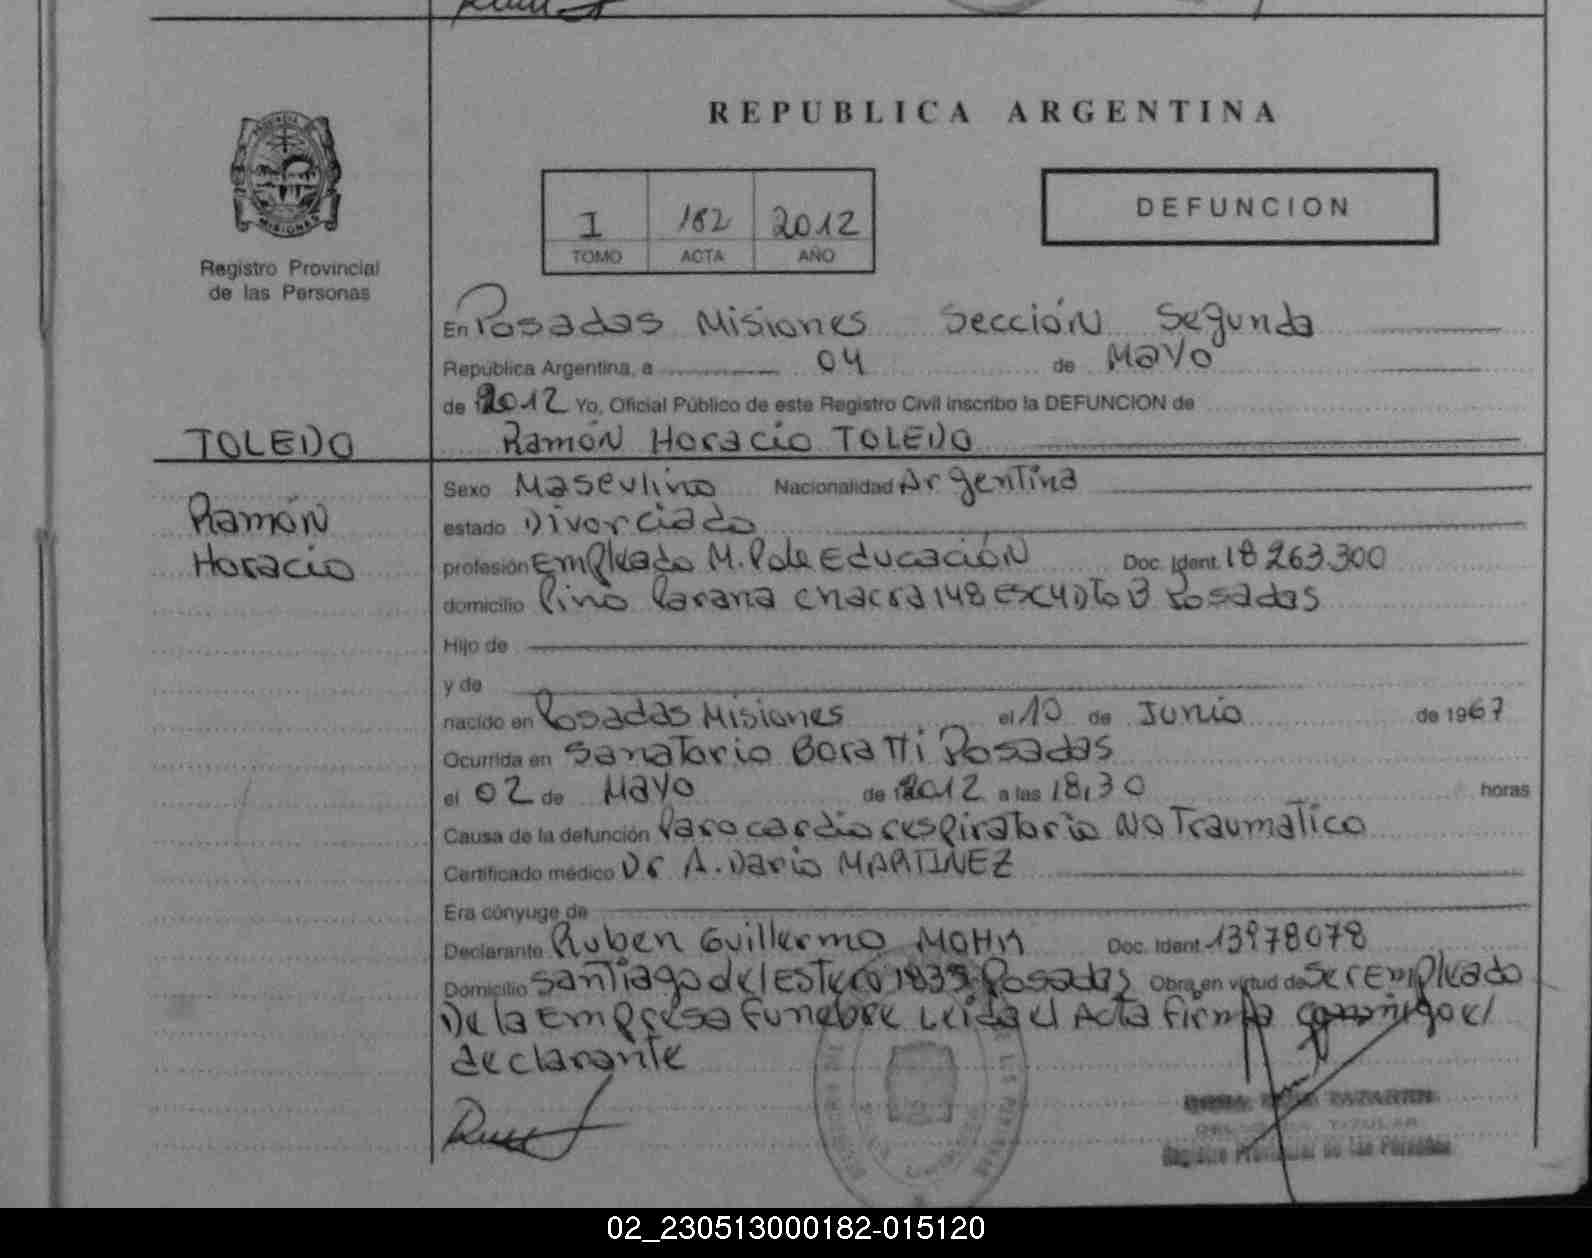 REPUBLICA ARGENTINA
PROVINCIA DE
MISIONES
Registro Provincial
de las Personas
I 182 2012
TOMO ACTA AÑO
DEFUNCION
En Posadas Misiones Sección Segunda
República Argentina, a 04 de Mayo
de 2012 Yo, Oficial Público de este Registro Civil inscribo la DEFUNCION de
TOLEDO
Ramón Horacio TOLEDO
Ramón
Horacio
Sexo Masculino Nacionalidad Argentina
estado Divorciado
profesión Empleado M. P. de Educación Doc. Ident. 18263.300
domicilio Pino Parana chacra 148 ESC 4 Dto B Posadas
Hijo de
y de
nacido en Posadas Misiones el 10 de Junio de 1967
Ocurrida en Sanatorio Boratti Posadas
el 02 de Mayo de 2012 a las 18,30 horas
Causa de la defunción Paro cardio respiratorio No Traumatico
Certificado médico Dr A. Dario MARTINEZ
Era cónyuge de
Declarante Ruben Guillermo MOHR Doc. Ident. 13978078
Domicilio Santiago del Estero 1835 Posadas Obra en virtud de Ser Empleado
De la Empresa Funebre Leida el Acta Firma conmigo el
declarante
TITULAR
Registro Provincial de las Personas
02_230513000182-015120